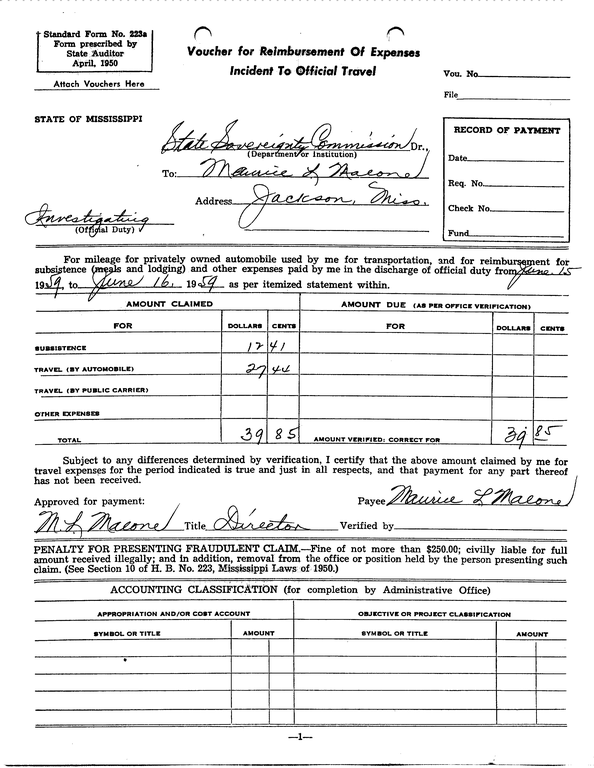 Standard Form No. 223a
Form prescribed by
State Auditor
April, 1950
Attach Vouchers Here
Voucher for Reimbursement Of Expenses
Incident To Official Travel
Vou. No.
File
STATE OF MISSISSIPPI
State Sovereignty Commission Dr.,
(Department or Institution)
To: Maurice L Malone
Address Jackson, Miss.
Investigating
(Official Duty)
RECORD OF PAYMENT
Date
Req. No.
Check No.
Fund
For mileage for privately owned automobile used by me for transportation, and for reimbursement for
subsistence (meals and lodging) and other expenses paid by me in the discharge of official duty from June 15
1959, to June 16, 1959 as per itemized statement within.
AMOUNT CLAIMED AMOUNT DUE (AS PER OFFICE VERIFICATION)
FOR DOLLARS CENTS FOR DOLLARS CENTS
SUBSISTENCE 12 41
TRAVEL (BY AUTOMOBILE) 27 44
TRAVEL (BY PUBLIC CARRIER)
OTHER EXPENSES
TOTAL 39 85 AMOUNT VERIFIED: CORRECT FOR 39 85
Subject to any differences determined by verification, I certify that the above amount claimed by me for
travel expenses for the period indicated is true and just in all respects, and that payment for any part thereof
has not been received.
Approved for payment: Payee Maurice L Malone
M. L. Malone Title Director Verified by
PENALTY FOR PRESENTING FRAUDULENT CLAIM.—Fine of not more than $250.00; civilly liable for full
amount received illegally; and in addition, removal from the office or position held by the person presenting such
claim. (See Section 10 of H. B. No. 223, Mississippi Laws of 1950.)
ACCOUNTING CLASSIFICATION (for completion by Administrative Office)
APPROPRIATION AND/OR COST ACCOUNT OBJECTIVE OR PROJECT CLASSIFICATION
SYMBOL OR TITLE AMOUNT SYMBOL OR TITLE AMOUNT
—1—